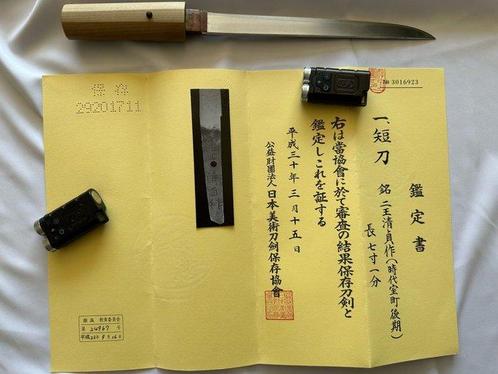 № 3016923
鑑定書
一、短刀 銘 二王清貞作(時代室町後期)
長 七寸一分
右は當協會に於て審査の結果保存刀剣と
鑑定しこれを証する
平成三十年三月十五日
公益財團法人日本美術刀剣保存協會
保存
29201711
教育委員会
第 24967 号
平成